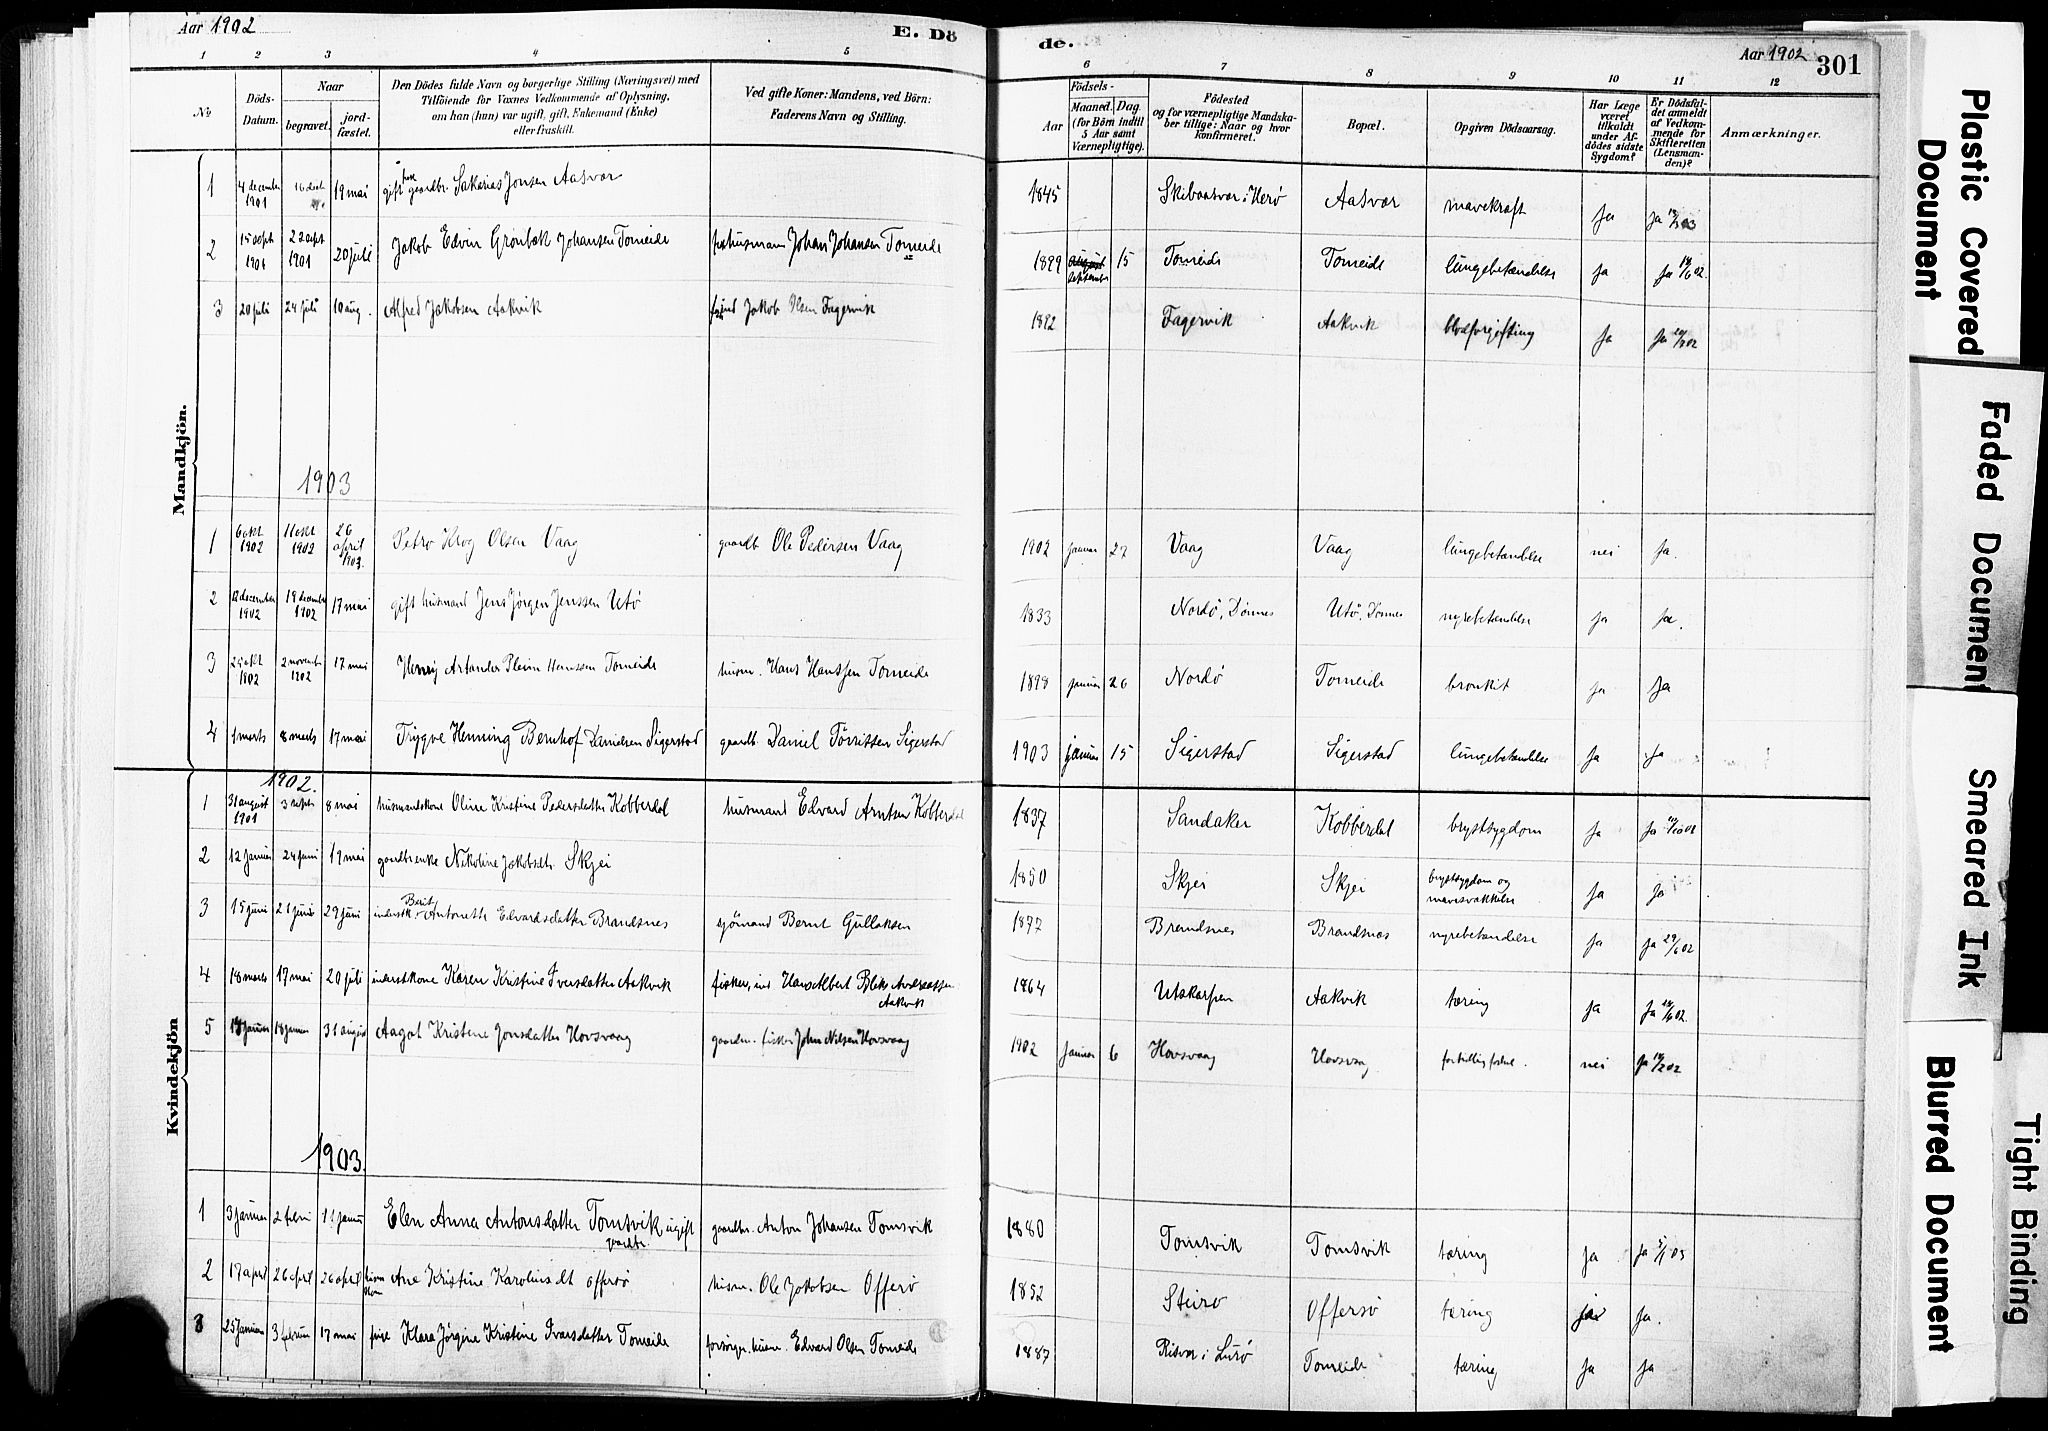 Aar 1902
E. Dö
de.
Aar 1902
301
1 2 3 4 5 6 7 8 9 10 11 12
№
Döds-Datum.
Naar
begravet.
jord-fæstet.
Den Dödes fulde Navn og borgerlige Stilling (Næringsvei) med
Tilföiende for Voxnes Vedkommende af Oplysning,
om han (hun) var ugift, gift, Enkemand (Enke)
eller fraskilt.
Ved gifte Koner: Mandens, ved Börn:
Faderens Navn og Stilling.
Födsels-
Aar
Maaned. Dag
(for Börn indtil
5 Aar samt
Værnepligtige).
Födested
og for værnepligtige Mandska-
ber tillige: Naar og hvor
konfirmeret.
Bopæl.
Opgiven Dödsaarsag.
Har Læge
været
tilkaldt
under Af-
dödes sidste
Sygdom?
Er Dödsfal-
det anmeldt
af Vedkom-
mende for
Skifteretten
(Lensman-
den)?
Anmærkninger.
Mandkjön.
1 4 december 1901 19 mai gift gaardbr. Sakarias Jonsen Aasvær 1845 Skibaasvær i Herø Aasvær mavekræft Ja Ja
2 15 sept 1901 22 sept 1901 20 juli Jakob Edvin Grønbæk Johansen Tomeide husmann Johan Johansen Tomeide 1899 september 15 Tomeide Tomeide lungebetændelse Ja Ja
3 20 juli 24 juli 10 aug. Alfred Jakobsen Aakvik Jakob Olsen Fagervik 1892 Fagervik Aakvik blodforgiftning Ja Ja
1903
1 6 okt 1902 11 okt 1902 26 april 1903. Petro Krog Olsen Vaag gaardb. Ole Pedersen Vaag 1902 januar 27 Vaag Vaag lungebetændelse nei Ja.
2 12 december 1902 19 december 1902 17 mai gift husmand Jens Jørgen Jenssen Utø 1833 Nordø, Dønnes Utø, Dønnes nyrebetændelse Ja Ja.
3 1902 2 november 1902 17 mai Hanssen Tomeide husm. Hans Hanssen Tomeide 1898 januar 26 Nordø Tomeide bronkit Ja Ja
4 1 marts 8 marts 17 mai Trygve Henning Bernhof Danielsen Sigerstad gaardb. Daniel Tørrissen Sigerstad 1903 januar 15 Sigerstad Sigerstad lungebetændelse Ja Ja
Kvindekjön
1902.
1 31 august 1901 3 septr 8 mai husmandskone Oline Kristine Pedersdatter Kobberdal husmand Edvard Arntsen Kobberdal 1837 Sandaker Kobberdal brystsygdom Ja Ja
2 12 januar 19 mai gaardbr.enke Nikoline Jakobsdtr Skjei 1850 Skjei Skjei brystsygdom og mavesvækkelse Ja Ja
3 15 juni 21 juni 29 juni Berit Antonette Edvardsdatter Brandsnes sjømand Bernt Gullaksen 1877 Brandsnes Brandsnes nyrebetændelse Ja Ja 29/6 02
4 18 marts 17 mai 20 juli inderstkone Karen Kristine Iversdatter Aakvik fisker, ind Hans Albert Andreassen Aakvik 1864 Utskarpen Aakvik tæring Ja Ja
5 18 januar 31 august Aagot Kristene Jonsdatter Hovsvaag gaardm. fisker John Nilsen Hovsvaag 1902 januar 6 Hovsvaag Hovsvaag nei Ja
1903.
1 3 januar 2 febru 11 januar Elen Anna Antonsdatter Tomsvik, ugift gaardbr. gaardbr. Anton Johansen Tomsvik 1880 Tomsvik Tomsvik tæring Ja Ja
2 17 april 26 april 26 april Ane Kristine Karolius dt Offersø husm. Ole Jakobsen Offersø 1852 Steirø Offersø tæring Ja Ja.
3 25 januar 3 februar 17 mai pige Klara Jørgine Kristine Ivarsdatter Tomeide forsørger. husm. Edvard Olsen Tomeide 1887 Risvær i Lurø Tomeide tæring Ja Ja
Plastic Covered Document
Faded Document
Smeared Ink
Blurred Document
Tight Binding